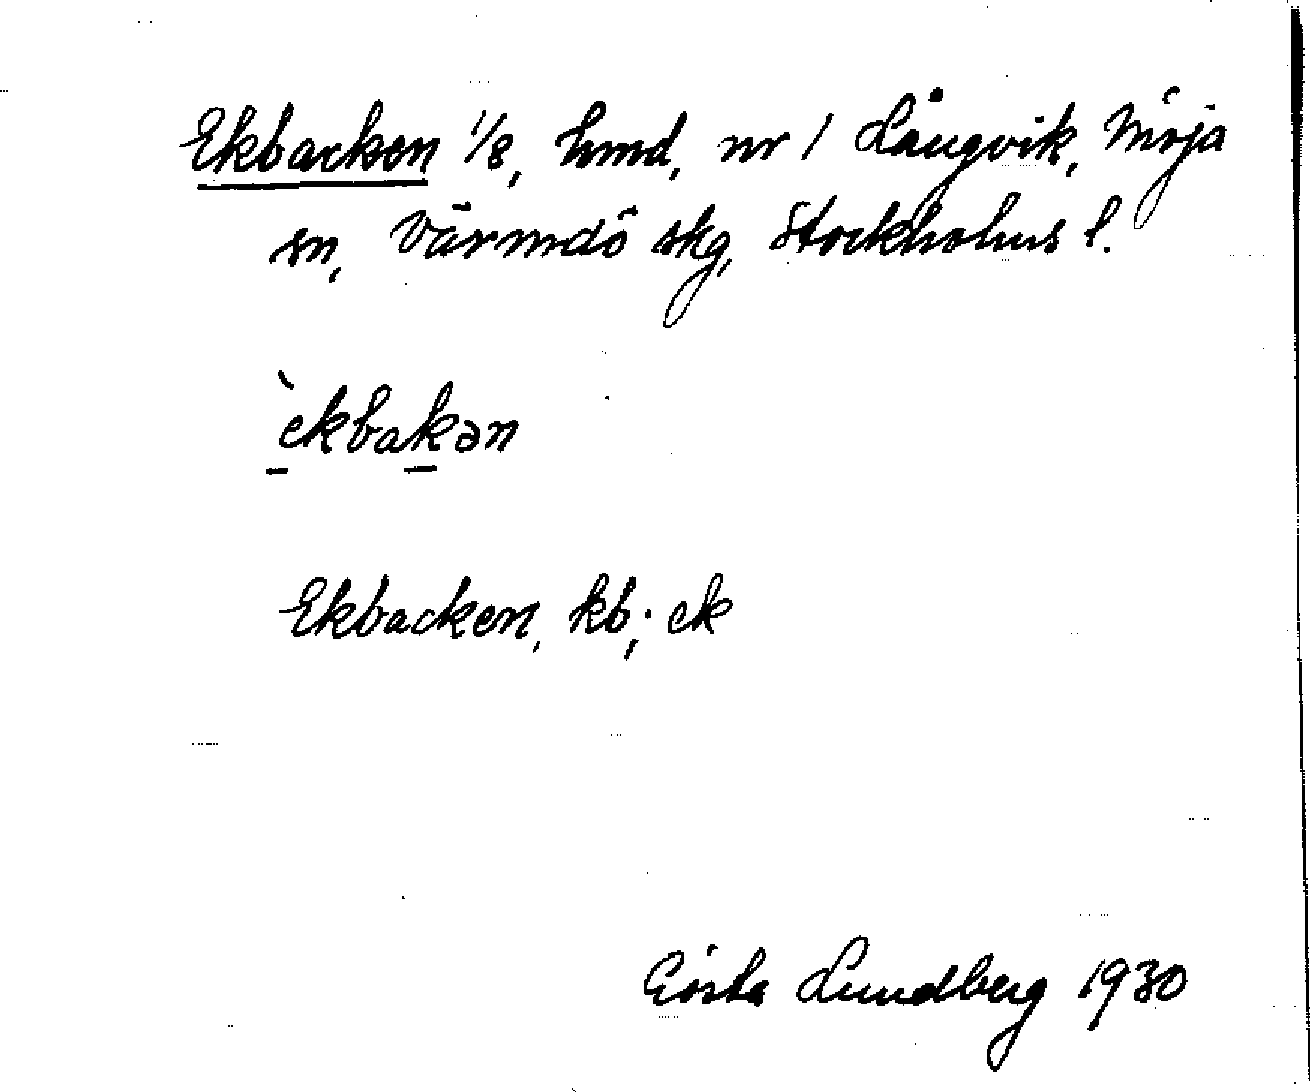 Ekbacken 1/8, hmd, nr 1 Långvik, Möja
sn, Värmdö skg, Stockholms l.
̀ekbakən
Ekbacken, kb; ek
Gösta Lundberg 1930